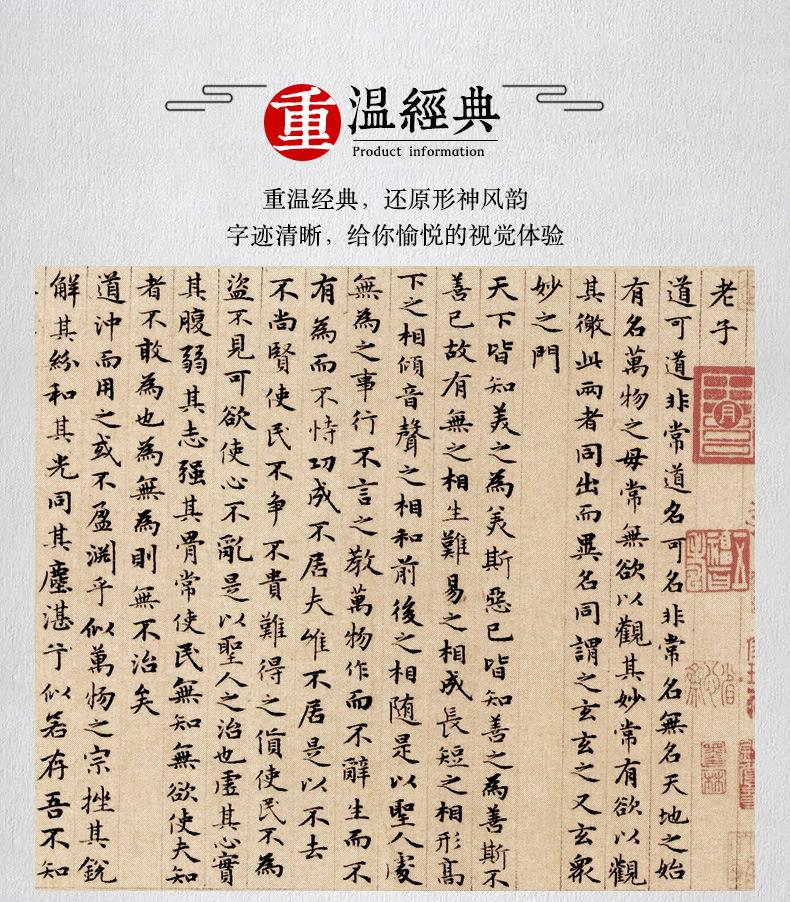 重温經典
Product information
重温经典，还原形神风韵
字迹清晰，给你愉悦的视觉体验
老子
道可道非常道名可名非常名無名天地之始
有名萬物之母常無欲以觀其妙常有欲以觀
其徼此兩者同出而異名同謂之玄玄之又玄衆
妙之門
天下皆知美之為美斯惡已皆知善之為善斯不
善已故有無之相生難易之相成長短之相形高
下之相傾音聲之相和前後之相随是以聖人處
無為之事行不言之教萬物作而不辭生而不
有為而不恃功成不居夫惟不居是以不去
不尚賢使民不争不貴難得之貨使民不為
盜不見可欲使心不亂是以聖人之治也虛其心實
其腹弱其志强其骨常使民無知無欲使夫知
者不敢為也為無為則無不治矣
道沖而用之或不盈淵乎似萬物之宗挫其銳
解其紛和其光同其塵湛兮似若存吾不知